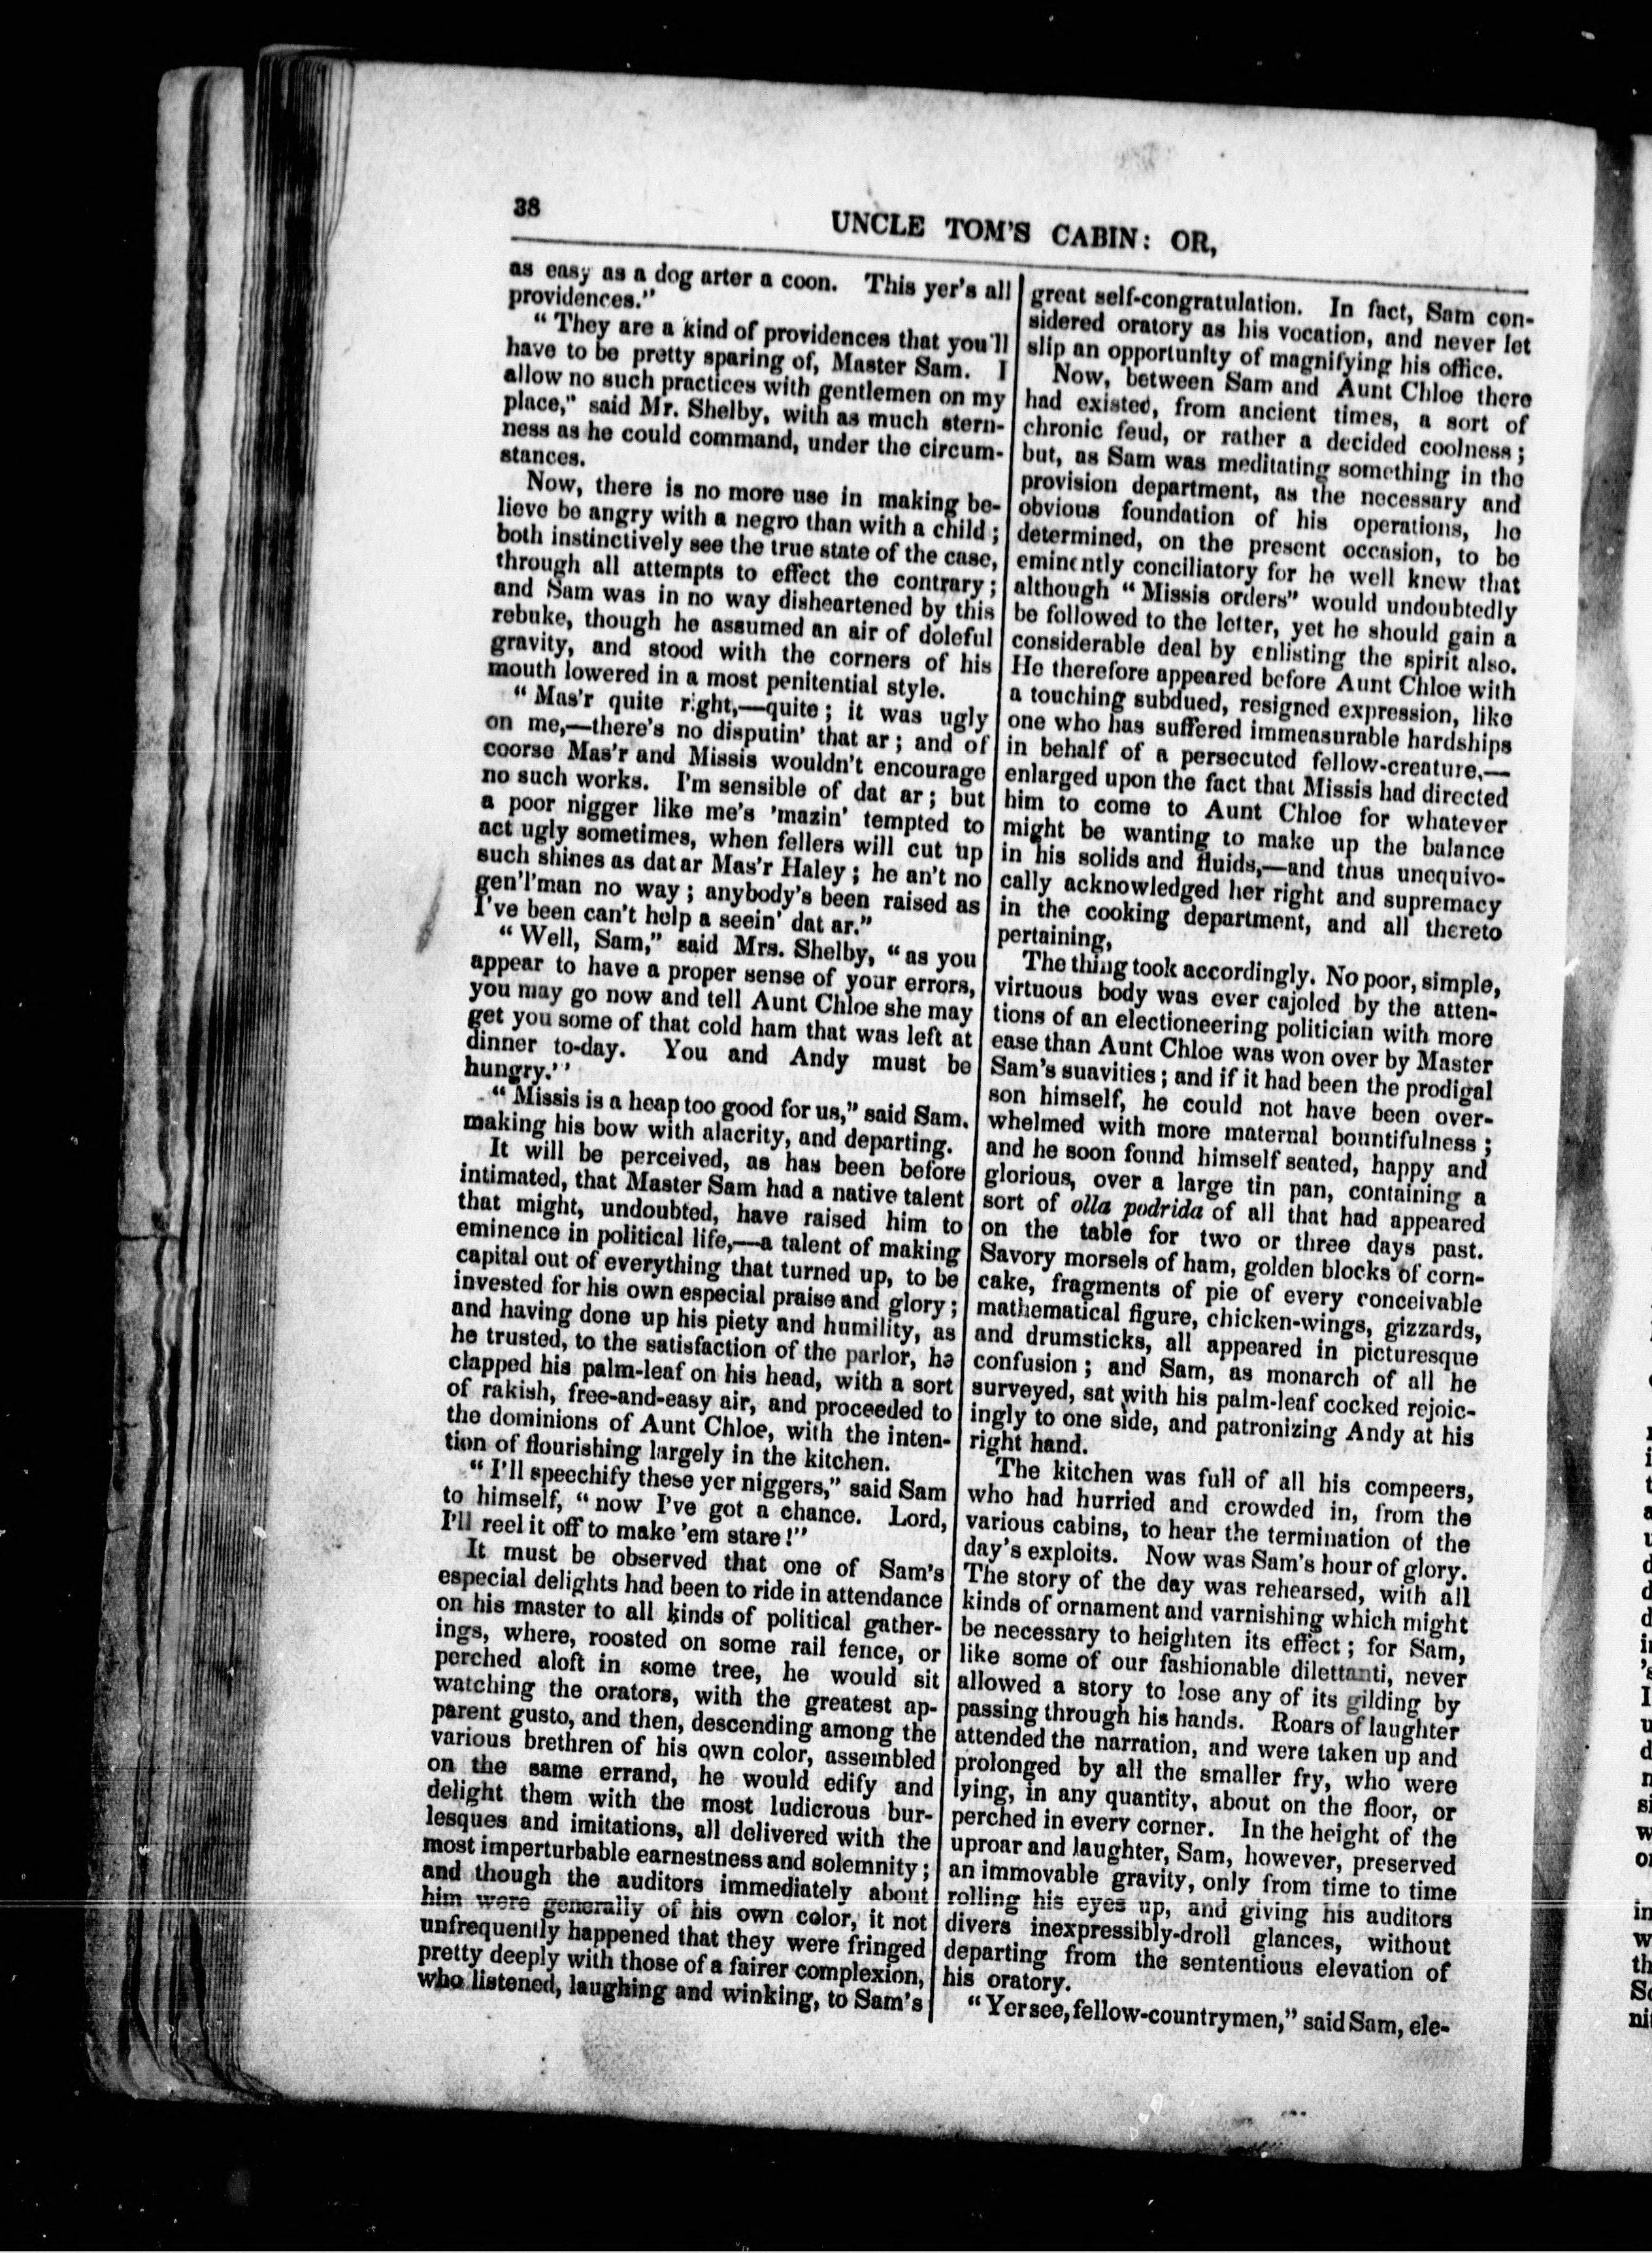 38
UNCLE TOM'S CABIN: OR,
as easy as a dog arter a coon. This yer's all
providences."
"They are a kind of providences that you'll
have to be pretty sparing of, Master Sam. I
allow no such practices with gentlemen on my
place," said Mr. Shelby, with as much stern-
ness as he could command, under the circum-
stances.
Now, there is no more use in making be-
lieve be angry with a negro than with a child;
both instinctively see the true state of the case,
through all attempts to effect the contrary;
and Sam was in no way disheartened by this
rebuke, though he assumed an air of doleful
gravity, and stood with the corners of his
mouth lowered in a most penitential style.
"Mas'r quite right,—quite; it was ugly
on me,—there's no disputin' that ar; and of
coorse Mas'r and Missis wouldn't encourage
no such works. I'm sensible of dat ar; but
a poor nigger like me's 'mazin' tempted to
act ugly sometimes, when fellers will cut up
such shines as dat ar Mas'r Haley; he an't no
gen'l'man no way; anybody's been raised as
I've been can't help a seein' dat ar."
"Well, Sam," said Mrs. Shelby, "as you
appear to have a proper sense of your errors,
you may go now and tell Aunt Chloe she may
get you some of that cold ham that was left at
dinner to-day. You and Andy must be
hungry.''
"Missis is a heap too good for us," said Sam,
making his bow with alacrity, and departing.
It will be perceived, as has been before
intimated, that Master Sam had a native talent
that might, undoubted, have raised him to
eminence in political life,—a talent of making
capital out of everything that turned up, to be
invested for his own especial praise and glory;
and having done up his piety and humility, as
he trusted, to the satisfaction of the parlor, he
clapped his palm-leaf on his head, with a sort
of rakish, free-and-easy air, and proceeded to
the dominions of Aunt Chloe, with the inten-
tion of flourishing largely in the kitchen.
"I'll speechify these yer niggers," said Sam
to himself, "now I've got a chance. Lord,
I'll reel it off to make 'em stare!"
It must be observed that one of Sam's
especial delights had been to ride in attendance
on his master to all kinds of political gather-
ings, where, roosted on some rail fence, or
perched aloft in some tree, he would sit
watching the orators, with the greatest ap-
parent gusto, and then, descending among the
various brethren of his own color, assembled
on the same errand, he would edify and
delight them with the most ludicrous bur-
lesques and imitations, all delivered with the
most imperturbable earnestness and solemnity;
and though the auditors immediately about
him were generally of his own color, it not
unfrequently happened that they were fringed
pretty deeply with those of a fairer complexion,
who listened, laughing and winking, to Sam's
great self-congratulation. In fact, Sam con-
sidered oratory as his vocation, and never let
slip an opportunity of magnifying his office.
Now, between Sam and Aunt Chloe there
had existed, from ancient times, a sort of
chronic feud, or rather a decided coolness;
but, as Sam was meditating something in the
provision department, as the necessary and
obvious foundation of his operations, he
determined, on the present occasion, to be
eminently conciliatory for he well knew that
although "Missis orders" would undoubtedly
be followed to the letter, yet he should gain a
considerable deal by enlisting the spirit also.
He therefore appeared before Aunt Chloe with
a touching subdued, resigned expression, like
one who has suffered immeasurable hardships
in behalf of a persecuted fellow-creature,—
enlarged upon the fact that Missis had directed
him to come to Aunt Chloe for whatever
might be wanting to make up the balance
in his solids and fluids,—and thus unequivo-
cally acknowledged her right and supremacy
in the cooking department, and all thereto
pertaining,
The thing took accordingly. No poor, simple,
virtuous body was ever cajoled by the atten-
tions of an electioneering politician with more
ease than Aunt Chloe was won over by Master
Sam's suavities; and if it had been the prodigal
son himself, he could not have been over-
whelmed with more maternal bountifulness;
and he soon found himself seated, happy and
glorious, over a large tin pan, containing a
sort of olla podrida of all that had appeared
on the table for two or three days past.
Savory morsels of ham, golden blocks of corn-
cake, fragments of pie of every conceivable
mathematical figure, chicken-wings, gizzards,
and drumsticks, all appeared in picturesque
confusion; and Sam, as monarch of all he
surveyed, sat with his palm-leaf cocked rejoic-
ingly to one side, and patronizing Andy at his
right hand.
The kitchen was full of all his compeers,
who had hurried and crowded in, from the
various cabins, to hear the termination of the
day's exploits. Now was Sam's hour of glory.
The story of the day was rehearsed, with all
kinds of ornament and varnishing which might
be necessary to heighten its effect; for Sam,
like some of our fashionable dilettanti, never
allowed a story to lose any of its gilding by
passing through his hands. Roars of laughter
attended the narration, and were taken up and
prolonged by all the smaller fry, who were
lying, in any quantity, about on the floor, or
perched in every corner. In the height of the
uproar and laughter, Sam, however, preserved
an immovable gravity, only from time to time
rolling his eyes up, and giving his auditors
divers inexpressibly-droll glances, without
departing from the sententious elevation of
his oratory.
"Yer see, fellow-countrymen," said Sam, ele-